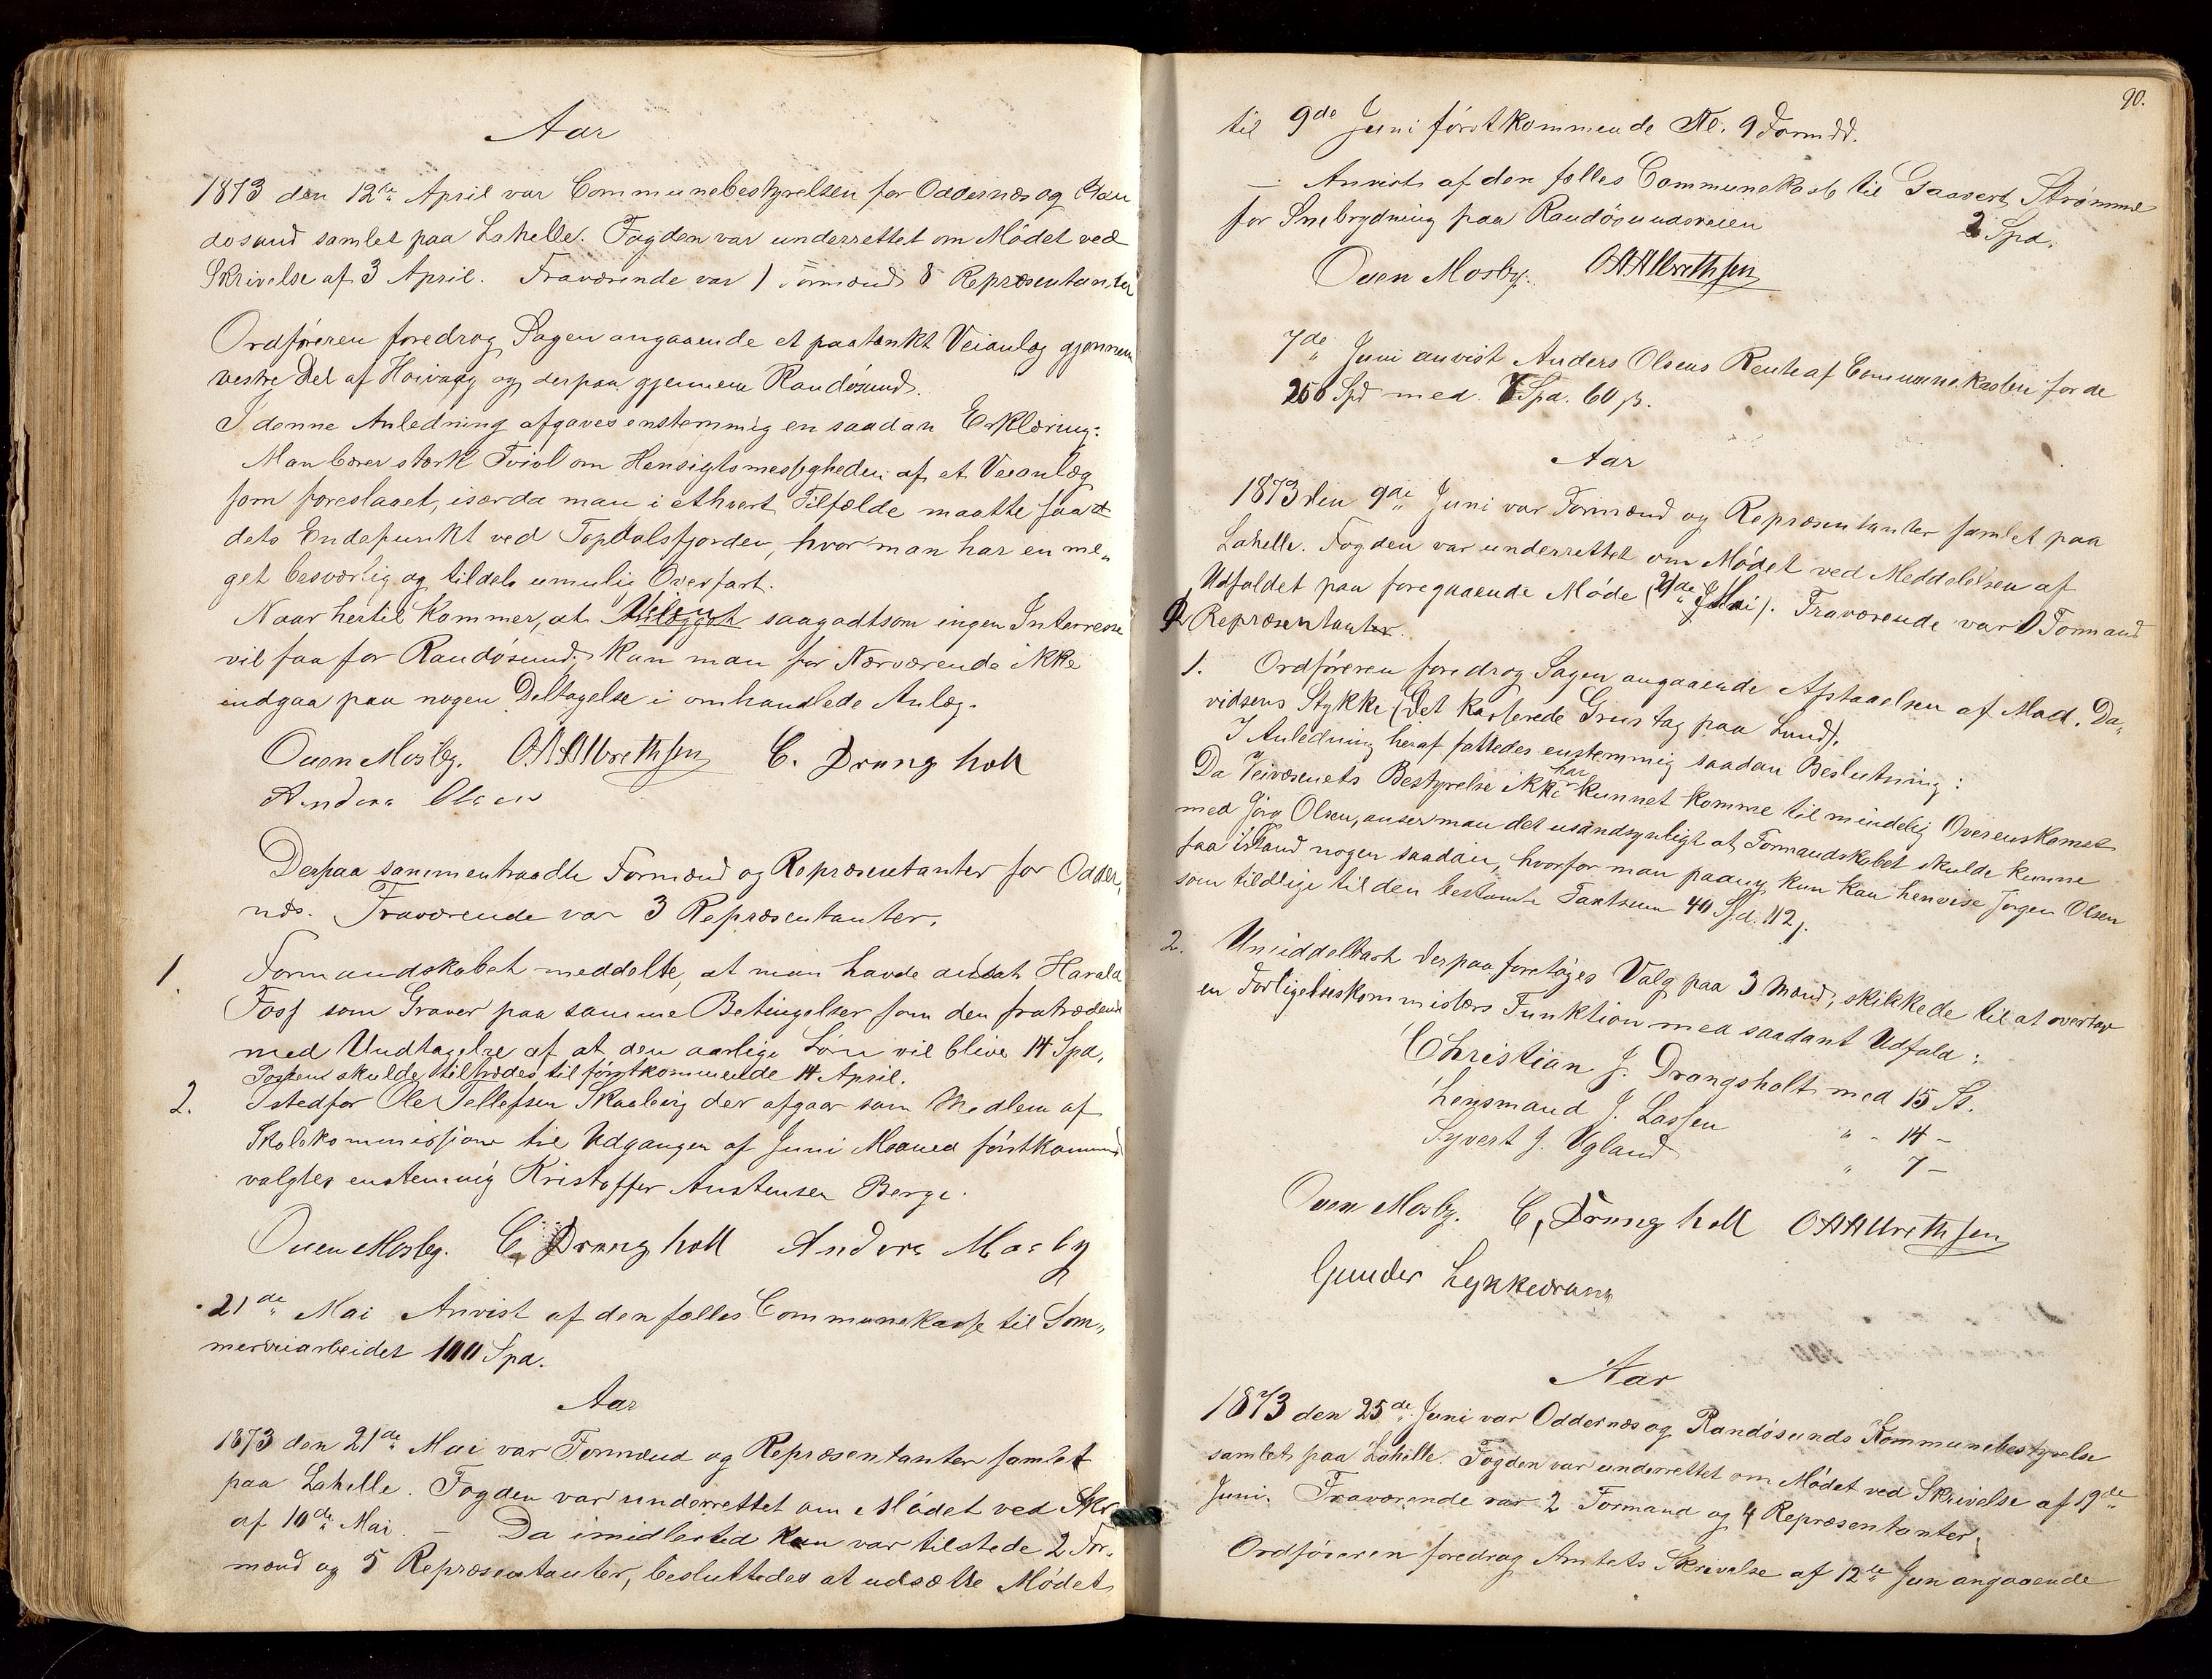 Aar
1873 den 12te April var Communebestyrelsen for Oddernæs og Ran
døsund samlet paa Lahelle. Fogden var underrettet om Mødet ved
Skrivelse af 3 April. Fraværende var 1 Formand 8 Repræsentanter
Ordføreren foredrog Sagen angaaende et paatænkt Veianlæg gjennem
vestre Del af Høivaag og derpaa gjennem Randøsund.
I denne Anledning afgaves enstemmig en saadan Erklæring:
Man bærer stærk Tvivl om Hensigtsmessigheden af et Veianlæg
som foreslaaet, især da man i ethvert Tilfælde maatte faa
dets Endepunkt ved Topdalsfjorden, hvor man har en me„
get besværlig og tildels umulig Overfart.
Naar hertil kommer, at saagodtsom ingen Interresse
vil faa for Randøsund, kan man for Nærværende ikke
indgaa paa nogen Deltagelse i omhandlede Anlæg.
Ouen Mosby. OAAlbrethsen C. Drangholt
Anders Olsen
Derpaa sammentraadte Formænd og Repræsentanter for Odder„
næs. Fraværende var 3 Repræsentanter.
1. Formandskabet meddelte, at man havde ansat Harald
Foss som Graver paa samme Betingelser som den fratrædende
med Undtagelse af at den aarlige Løn vil blive 14 Spd.
Posten skulde tiltrædes til førstkommende 14 April.
2. Istedfor Ole Tellefsen Skaalevig der afgaar som Medlem af
Skolekommissionen til Udgangen af Juni Maaned førstkommend
valgtes enstemmig Kristoffer Austensen Berge.
Ouen Mosby. C. Drangholt Anders Mosby
21de Mai Anvist af den fælles Communekasse til Som„
merveiarbeidet 100 Spd.
Aar
1873 den 21de Mai var Formænd og Repræsentanter samlet
paa Lahelle. Fogden var underrettet om Mødet ved Skr.
af 10de Mai. — Da imidlertid kun var tilstede 2 For„
mænd og 5 Repræsentanter, besluttedes at udsætte Mødet
90.
til 9de Juni førstkommende Kl. 9 Formdd.
— Anvist af den fælles Communekasse til Gaavert Strømme
for Snebrydning paa Randøsundsveien 2 Spd.
Ouen Mosby. OAAlbrethsen
7de Juni anvist Anders Olsens Rente af Communekassen for de
250 Spd med 7 Spd. 60 ß.
Aar
1873 den 9de Juni var Formænd og Repræsentanter samlet paa
Lahelle. Fogden var underrettet om Mødet ved Meddelelsen af
Udfaldet paa foregaaende Møde (21de Mai). Fraværende var Formand
Repræsentanter.
1. Ordføreren foredrog Sagen angaaende Afstaaelsen af Mad. Da„
vidsens Stykke (Det kasserede Grustag paa Lund).
I Anledning heraf fattedes enstemmig saadan Beslutning:
Da Veivæsenets Bestyrelse ikke har kunnet komme til mindelig Overenskomst
med Jörg Olsen, anser man det usandsynligt at Formandskabet skulde kunne
faa istand nogen saadan, hvorfor man paany kun kan henvise Jörgen Olsen
som tidlige til den bestemte Taxtsum 40 Spd. 112 ß.
2. Umiddelbart derpaa foretoges Valg paa 3 Mænd, skikkede til at overtage
en Forligelseskommisærs Funktion med saadant Udfald:
Christian J. Drangsholt med 15 St.
Lensmand J. Lassen " - 14 -
Syvert J. Ugland " 7 -
Ouen Mosby. C. Drangholt OAAlbrethsen
Gunder Lykkedrang
Aar
1873 den 25de Juni var Oddernæs og Randøsunds Kommunebestyrelse
samlet paa Lahelle. Fogden var underrettet om Mødet ved Skrivelse af 19de
Juni. Fraværende var 2 Formænd og 4 Repræsentanter.
Ordføreren foredrog Amtets Skrivelse af 12te Jun angaaende